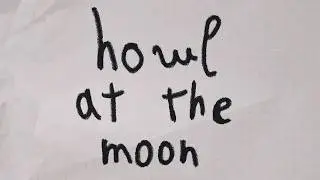 howl
at the
moon